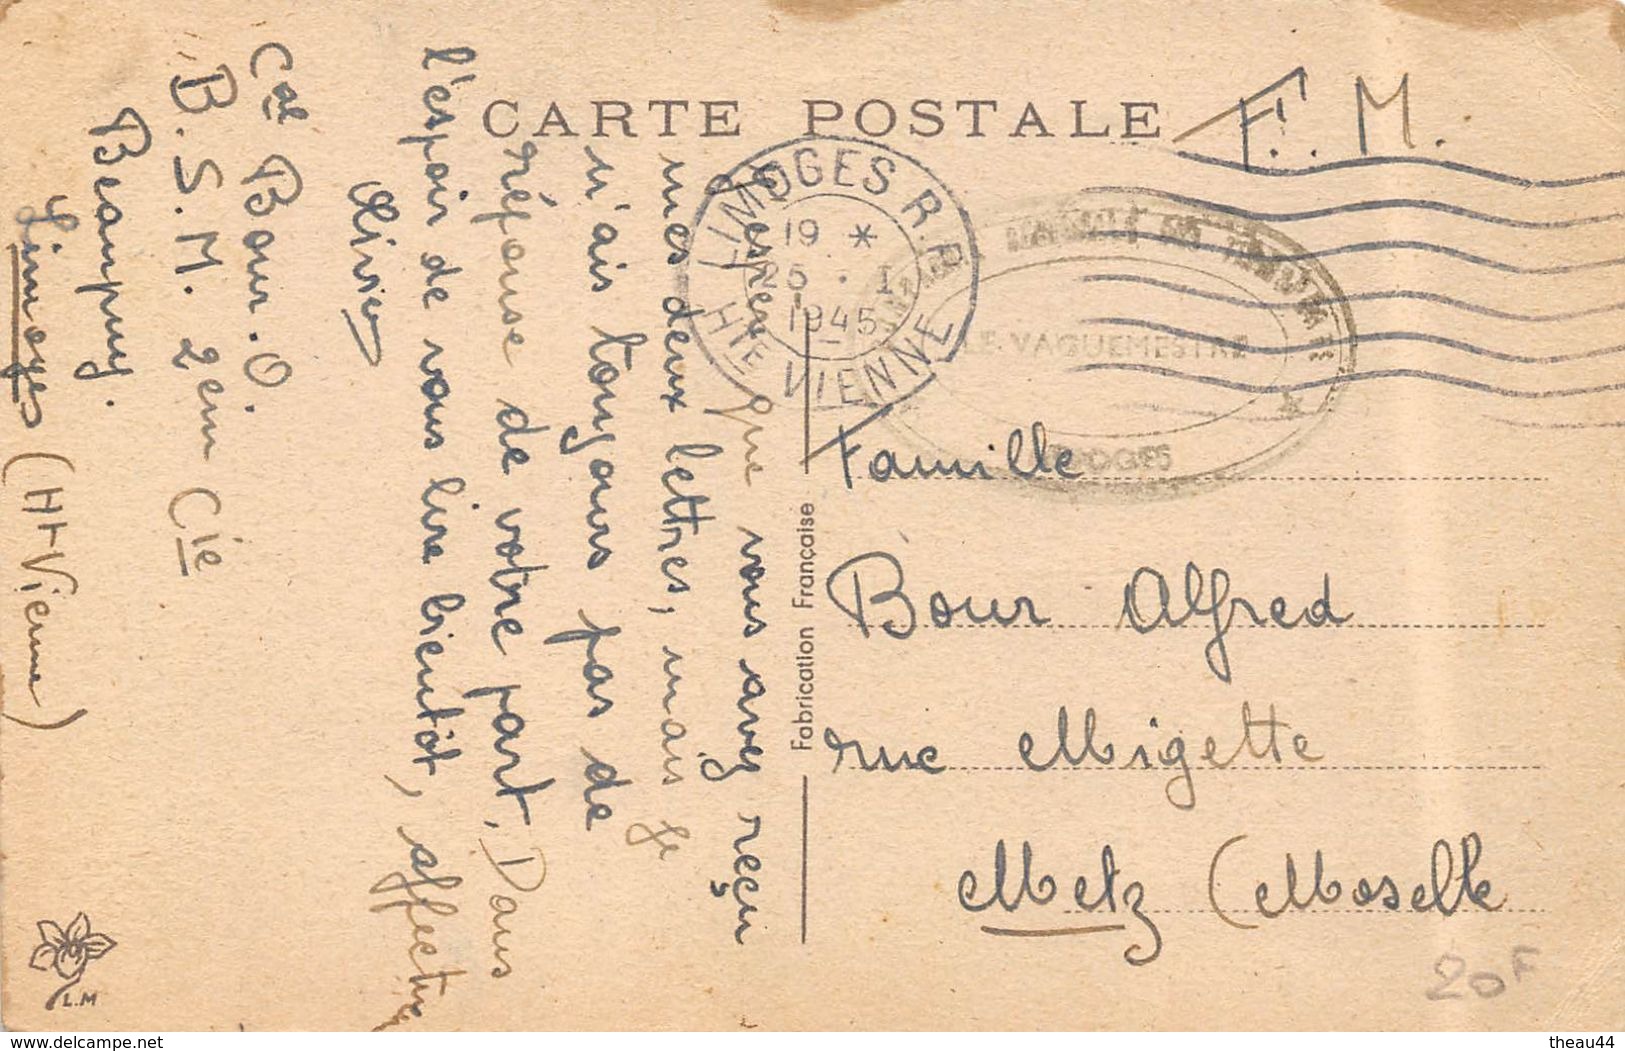 CARTE POSTALE
F. M.
LIMOGES R.P.
19 *
25 . I
1945
Hte VIENNE
LE VAGUEMESTRE
LIMOGES
J'espère que vous avez reçu
mes deux lettres, mais je
n'ais toujours pas de
réponse de votre part, Dans
l'espoir de vous lire bientôt, affectu
Olivier
Cal Bour. O.
B. S. M. 2em Cie
Beaupuy.
Limoges (Ht Vienne)
Fabrication Française
Famille
Bour Alfred
rue Migette
Metz (Moselle
20F
L.M
www.delcampe.net
theau44